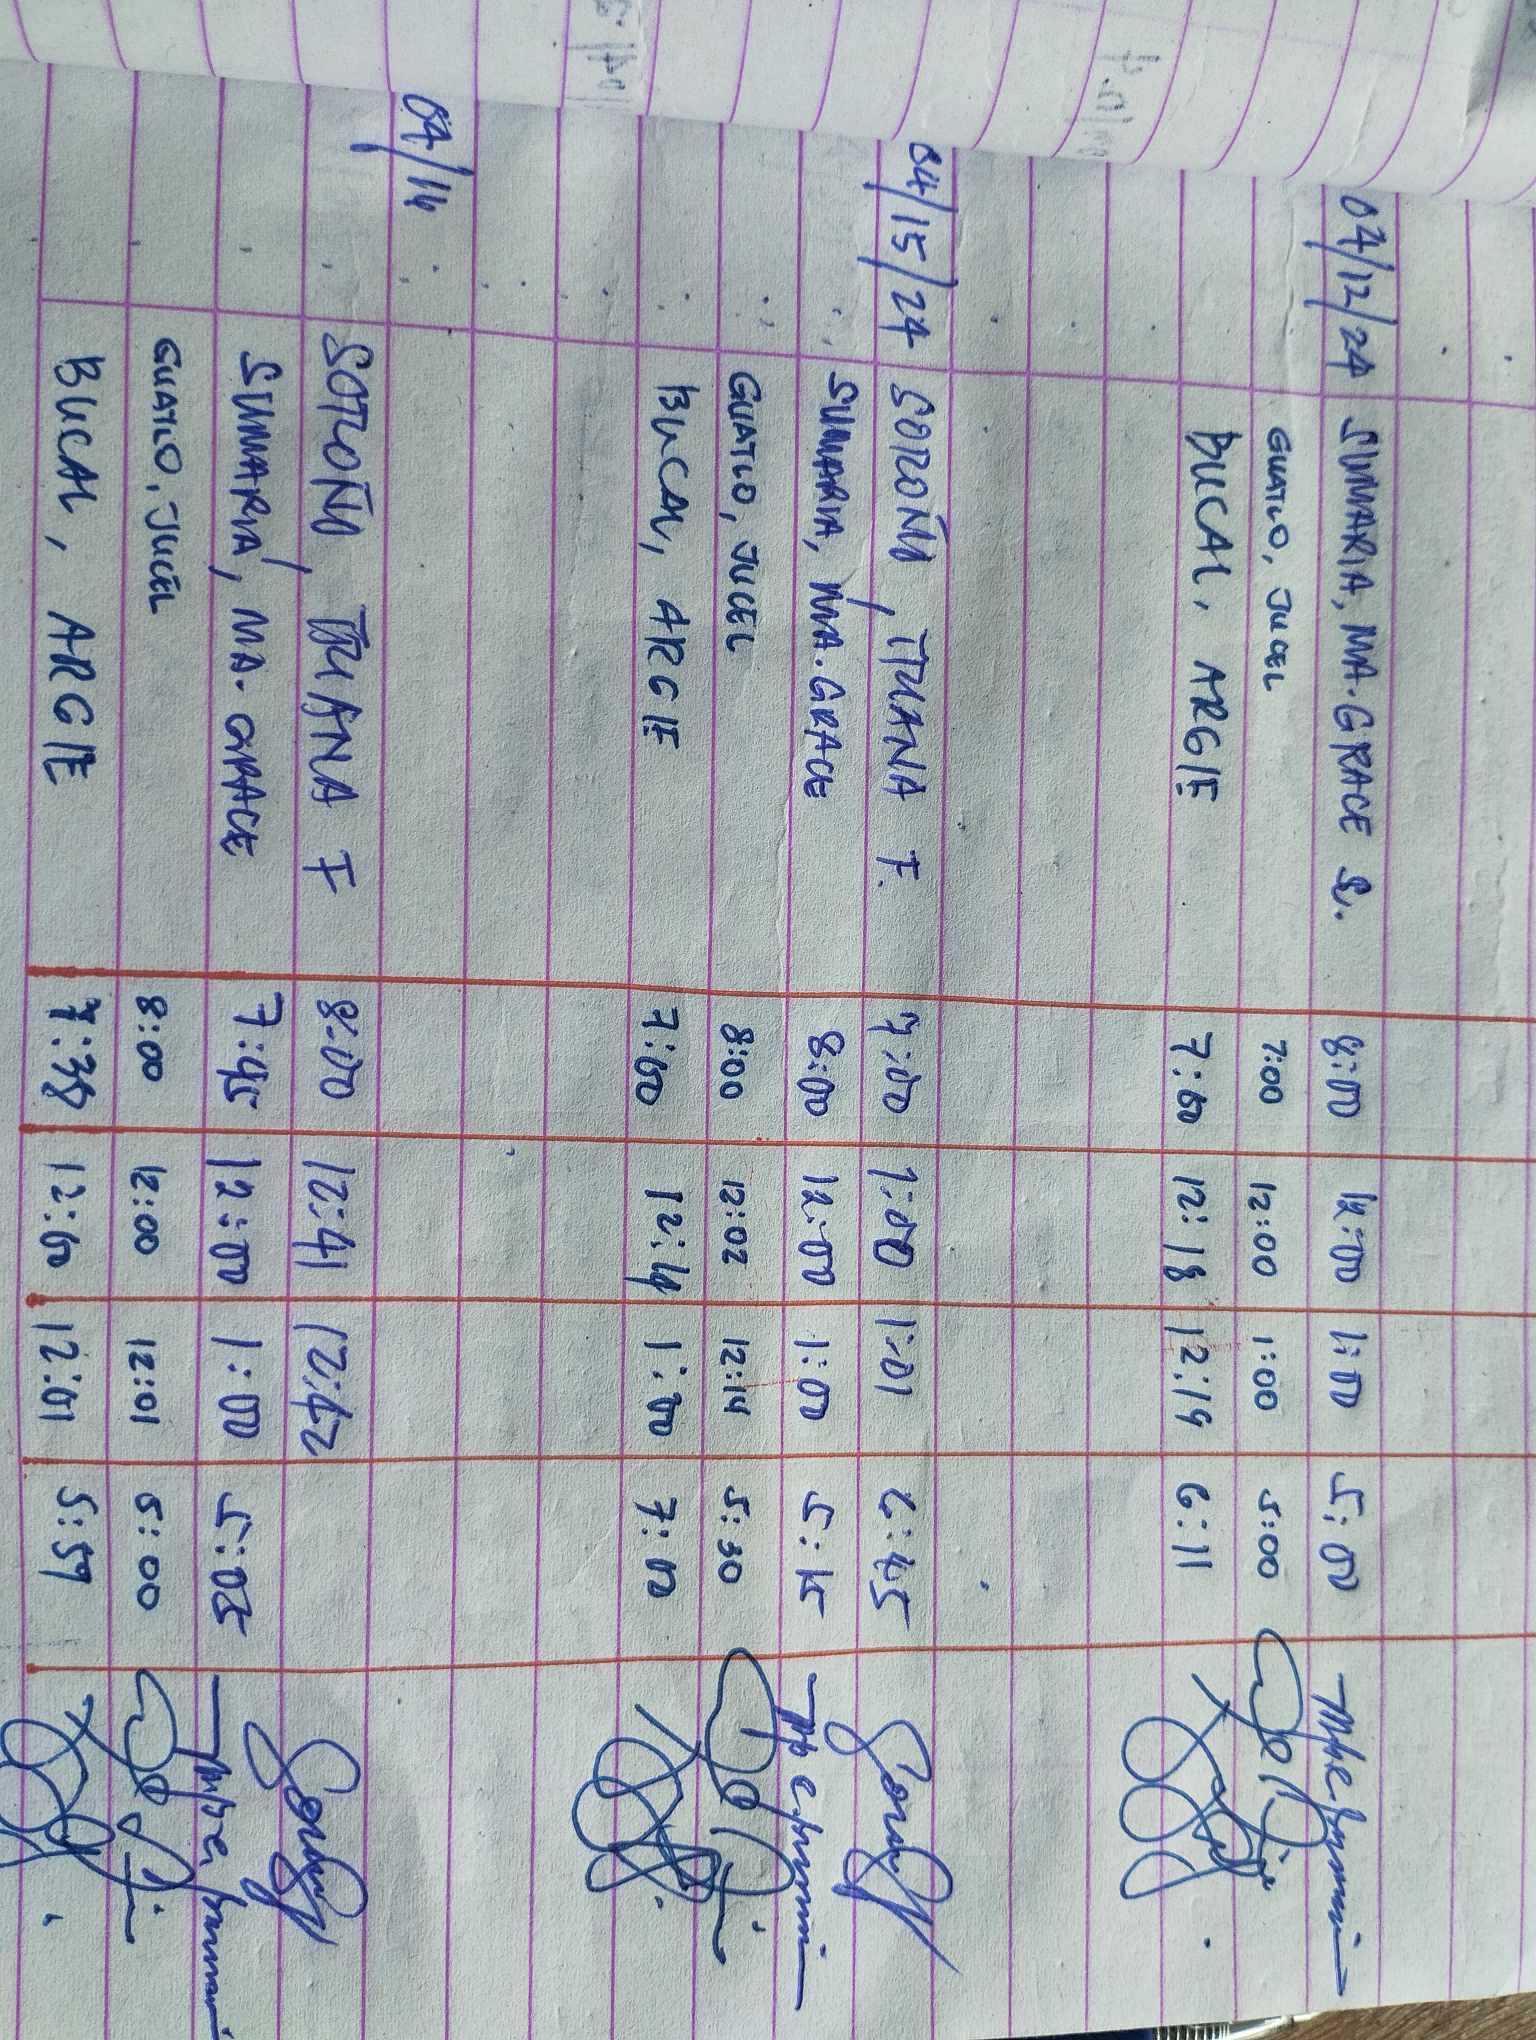 04/12/24 SUMARIA, MA. GRACE S. 8:00 12:00 1:00 5:00
GUATLO, JUCEL 7:00 12:00 1:00 5:00
BUCAL, ARGIE 7:60 12:18 12:19 6:11
04/15/24 SOROÑO, ITUANA F. 7:00 1:00 1:01 6:45
SUMARIA, MA. GRACE 8:00 12:00 1:00 5:15
GUATLO, JUCEL 8:00 12:02 12:14 5:30
BUCAL, ARGIE 7:60 12:14 1:00 7:10
04/16
8:00 12:41 12:42
SUMARIA, MA. GRACE 7:45 12:00 1:00 5:05
GUATLO, JUCEL 8:00 12:00 12:01 5:00
BUCAL, ARGIE 7:38 12:60 12:01 5:59